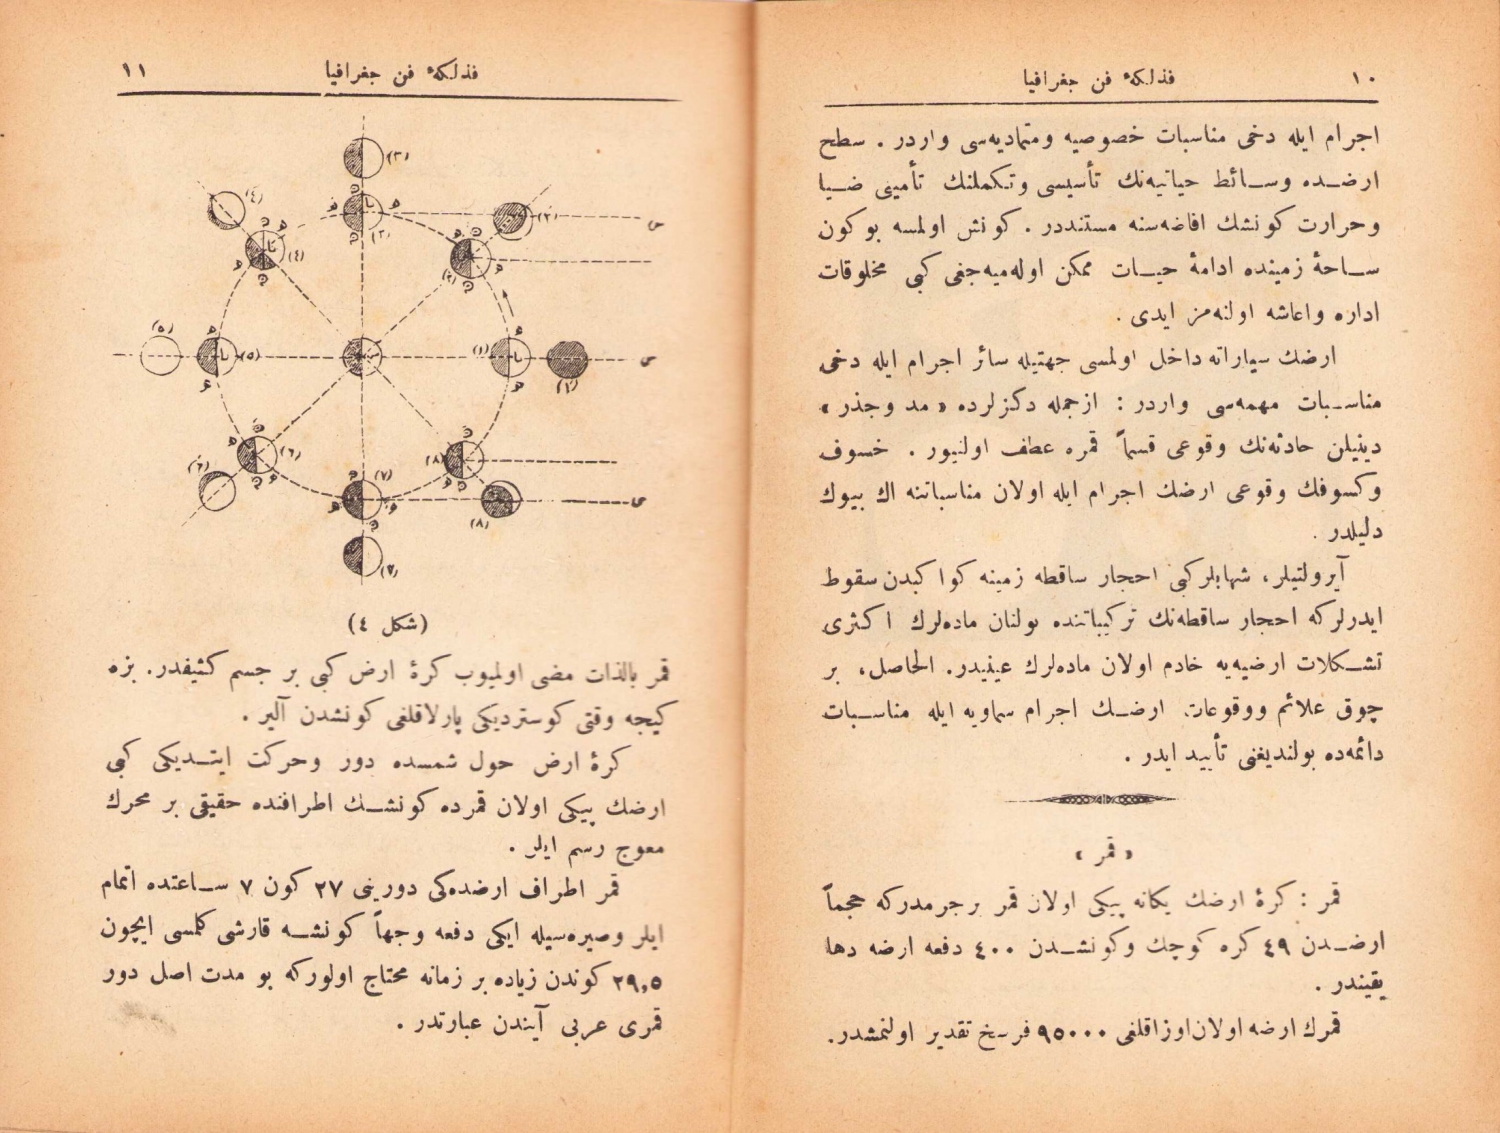 ١٠
فذلكهٔ فن جغرافيا
اجرام ايله دخى مناسبات خصوصيه ومتماديه‌سى واردر . سطح
ارضده وسائط حياتيه‌نك تأسيسى وتكملنك تأمينى ضيا
وحرارت كونشك افاضه‌سنه مستنددر . كونش اولمسه بوكون
ساحهٔ زمينده ادامهٔ حيات ممكن اوله‌ميه‌جغى كبى مخلوقات
اداره واعاشه اولنه‌مز ايدى .
ارضك سياراته داخل اولمسى جهتيله سائر اجرام ايله دخى
مناسبات مهمه‌سى واردر : ازجمله دكزلرده « مد وجذر »
دينيلن حادثه‌نك وقوعى قسماً قمره عطف اولنيور . خسوف
وكسوفك وقوعى ارضك اجرام ايله اولان مناسباتنه اك بيوك
دليلدر .
آيرولتيلر، شهابلركبى احجار ساقطه زمينه كواكبدن سقوط
ايدرلركه احجار ساقطه‌نك تركيباتنده بولنان ماده‌لرك اكثرى
تشكلات ارضيه‌يه خادم اولان ماده‌لرك عينيدر. الحاصل، بر
چوق علائم ووقوعات ارضك اجرام سماويه ايله مناسبات
دائمه‌ده بولنديغنى تأييد ايدر .
« قمر »
قمر : كرهٔ ارضك يكانه پيكى اولان قمر برجرمدركه حجماً
ارضدن ٤٩ كره كوچك وكونشدن ٤٠٠ دفعه ارضه دها
يقيندر .
قمرك ارضه اولان اوزاقلغى ٩٥٠٠٠ فرسخ تقدير اولنمشدر.
١١
فذلكهٔ فن جغرافيا
(٣)
(٤)
(٢)
(٣)
(٤)
(٢)
س
(٥)
(٥)
(١)
(١)
س
(٦)
(٦)
(٧)
(٨)
(٨)
س
(٧)
(شكل ٤)
قمر بالذات مضى اولميوب كرهٔ ارض كبى بر جسم كثيفدر. بزه
كيجه وقتى كوسترديكى پارلاقلغى كونشدن آلير .
كرهٔ ارض حول شمسده دور وحركت ايتديكى كبى
ارضك پيكى اولان قمرده كونشك اطرافنده حقيقى بر محرك
معوج رسم ايلر .
قمر اطراف ارضده‌كى دورينى ٢٧ كون ٧ ساعتده اتمام
ايلر وصيره‌سيله ايكى دفعه وجهاً كونشه قارشى كلمسى ايچون
٢٩,٥ كوندن زياده بر زمانه محتاج اولوركه بو مدت اصل دور
قمرى عربى آيندن عبارتدر .